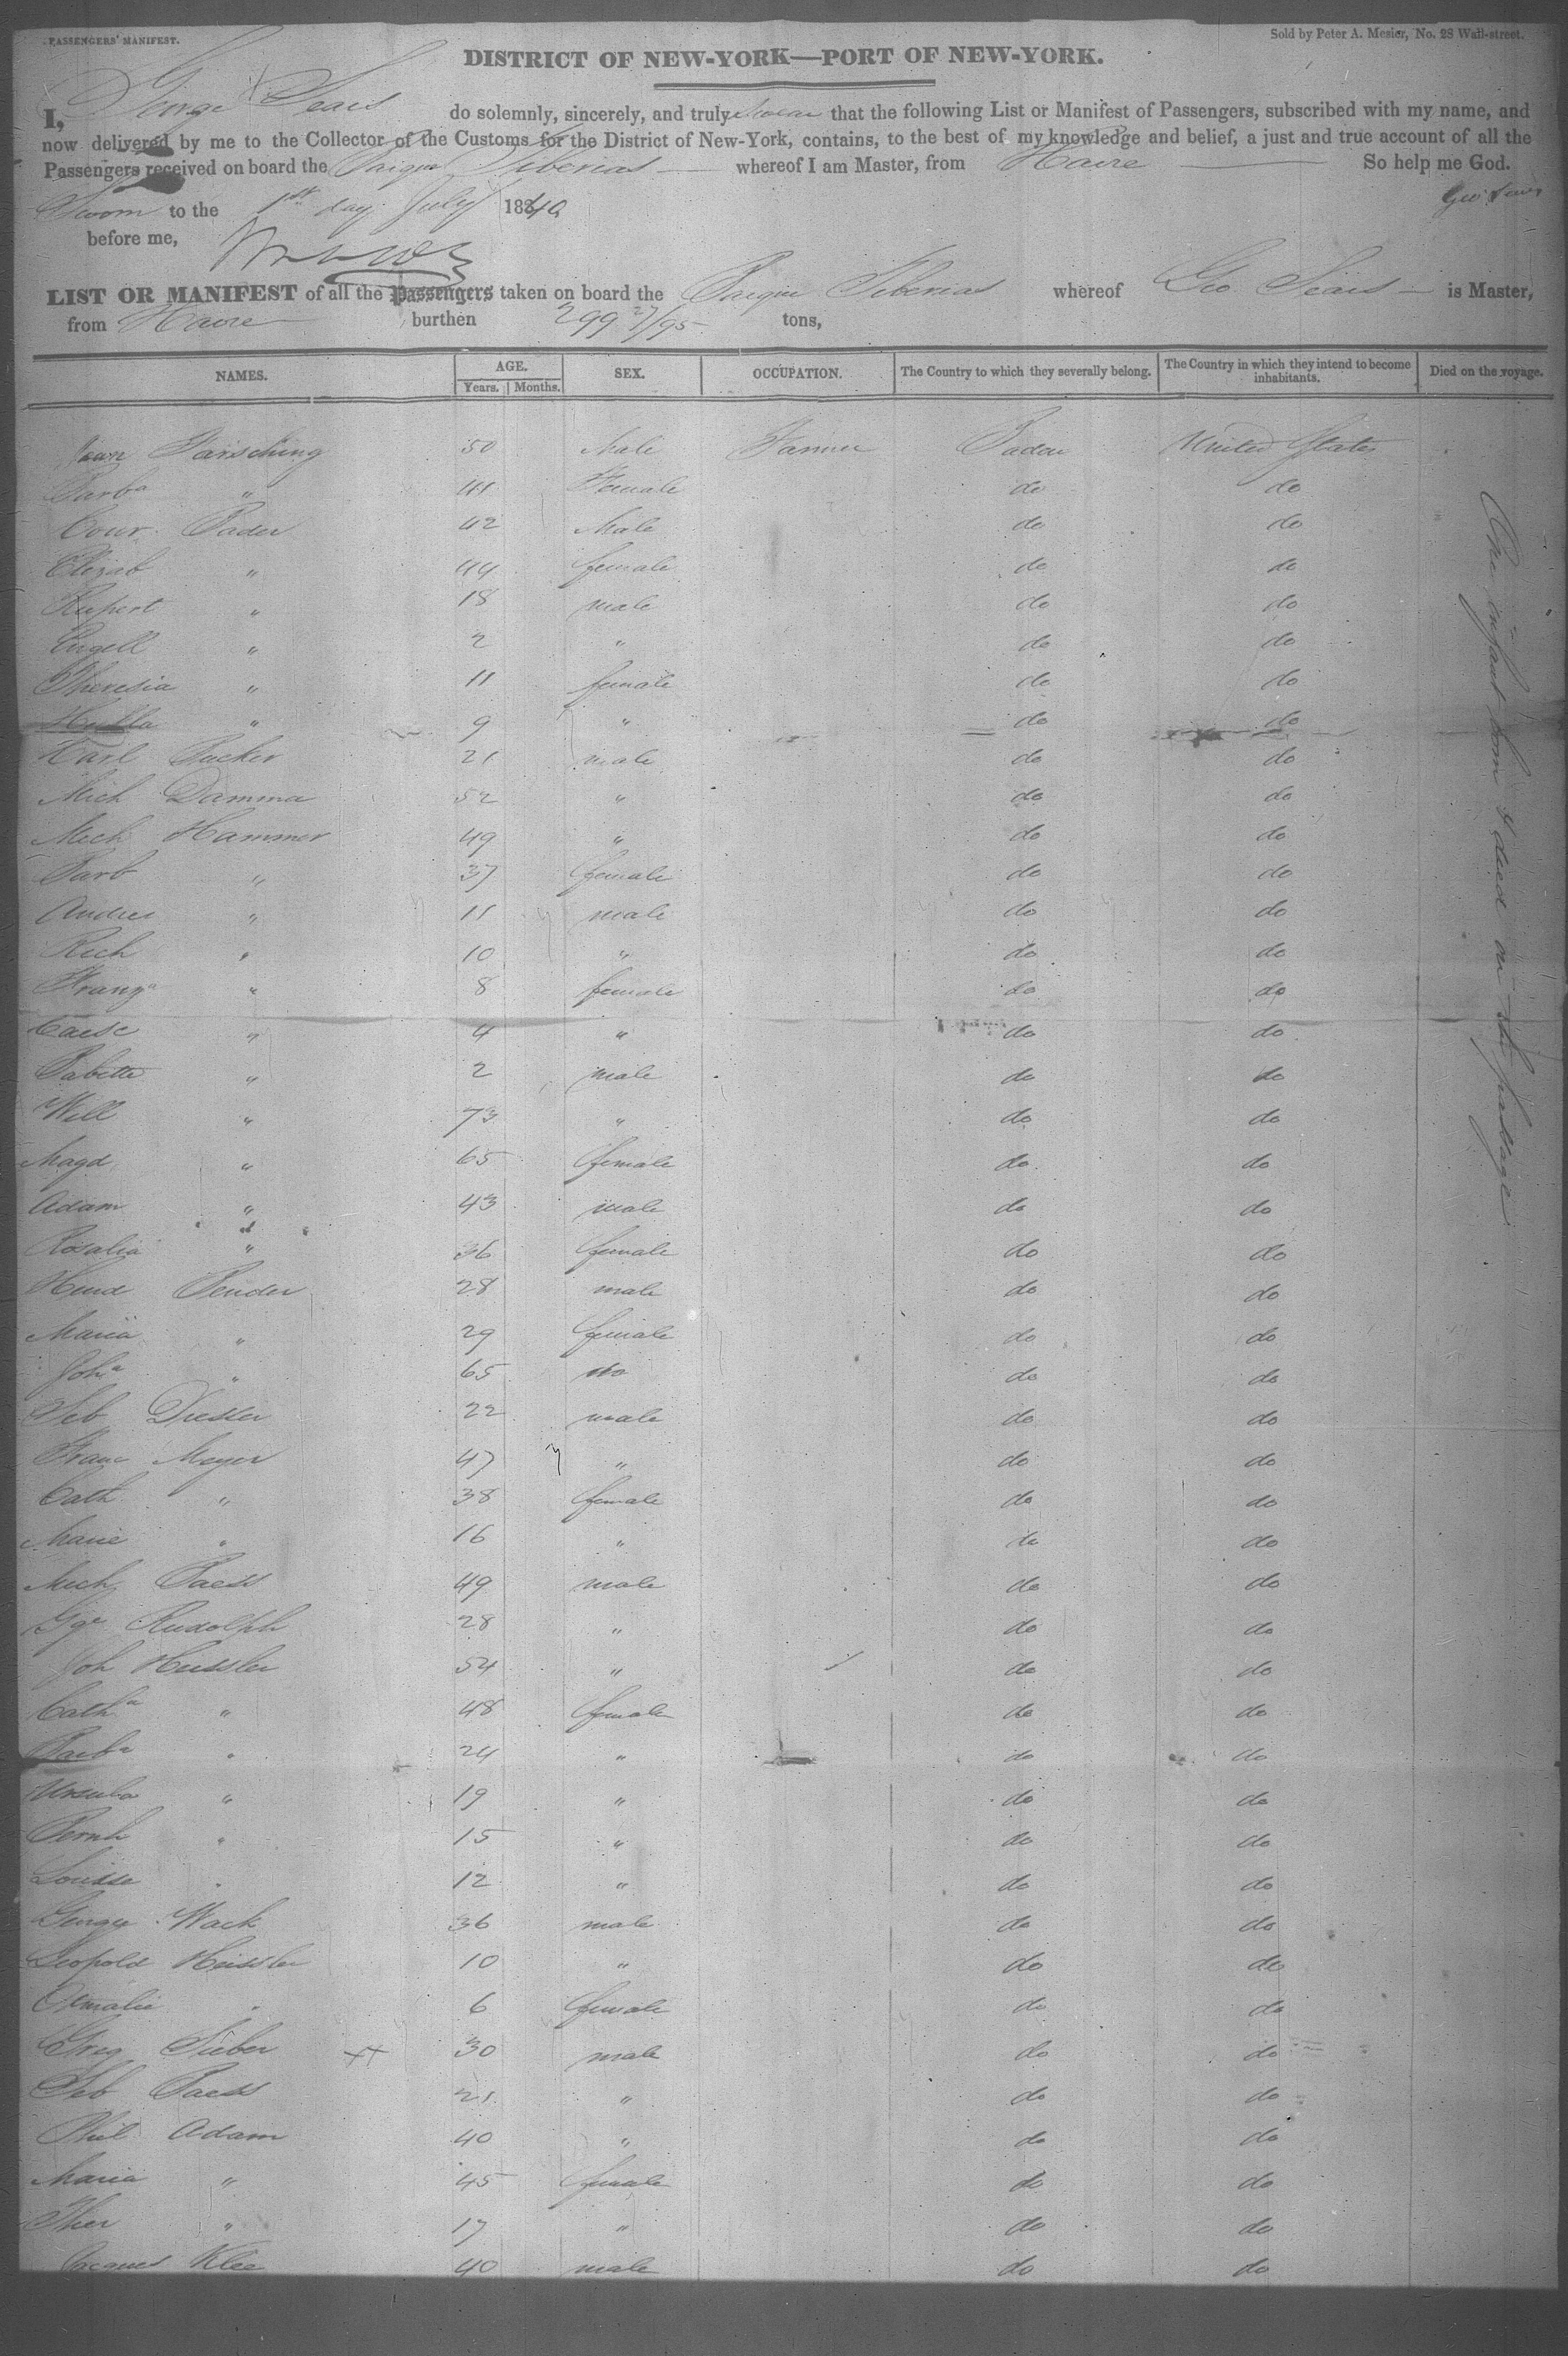 PASSENGERS' MANIFEST.
Sold by Peter A. Mesier, No. 28 Wall-street.
DISTRICT OF NEW-YORK—PORT OF NEW-YORK.
I, George Sears do solemnly, sincerely, and truly swear that the following List or Manifest of Passengers, subscribed with my name, and
now delivered by me to the Collector of the Customs for the District of New-York, contains, to the best of my knowledge and belief, a just and true account of all the
Passengers received on board the Barque Tiberias whereof I am Master, from Havre So help me God.
Sworn to the 1st day July 1840
Geo Sears
before me,
LIST OR MANIFEST of all the Passengers taken on board the Barque Tiberias whereof Geo Sears is Master,
from Havre burthen 299 27/95 tons,
NAMES. AGE. SEX. OCCUPATION. The Country to which they severally belong. The Country in which they intend to become inhabitants. Died on the voyage.
Years. Months.
Barsching 50 Male Farmer Baden United States
Barba " 41 Female do do
Bader 42 Male do do
Elizab " 44 female do do
Rupert " 18 male do do
Engell " 2 " do do
Theresia " 11 female do do
" 9 " do do
Karl Bucker 21 male do do
Mich Damma 52 " do do
Mich Hammer 49 " do do
Barb " 37 female do do
Andres " 11 male do do
Rich " 10 " do do
Franza " 8 female do do
" 4 " do do
Babette " 2 male do do
Will " 73 " do do
Magd " 65 female do do
Adam " 43 male do do
Rosalia " 36 female do do
Bender 28 male do do
Maria " 29 female do do
Joha " 65 do do do
Seb Dressler 22 male do do
Franc Meyer 47 " do do
Cath " 38 female do do
Marie " 16 " do do
Mich Baess 49 male do do
Ggr Rudolph 28 " do do
Joh Heissler 54 " do do
Catha " 48 female do do
Barba " 24 " do do
Ursula " 19 " do do
Bernh " 15 " do do
Louise " 12 " do do
George Wack 36 male do do
Leopold Heissler 10 " do do
Amalie " 6 female do do
Greg Sieber 30 male do do
Seb Baess 21 " do do
Phil Adam 40 " do do
Maria " 45 female do do
Ther " 17 " do do
Jacques Klee 40 male do do
One infant born & died on the passage